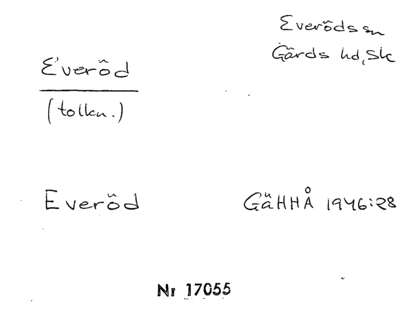 Everöds sn
Gärds hd, Sk
E'veröd
(tolkn.)
Everöd
GäHHÅ 1946:28
Nr 17055